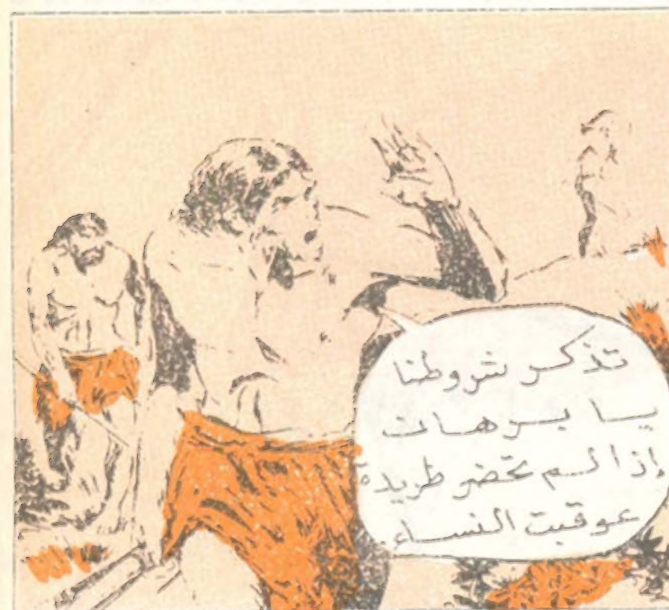 تذكر شروطنا
يا برهان
إذا لم تحضر طريدة
عوقبت النساء.